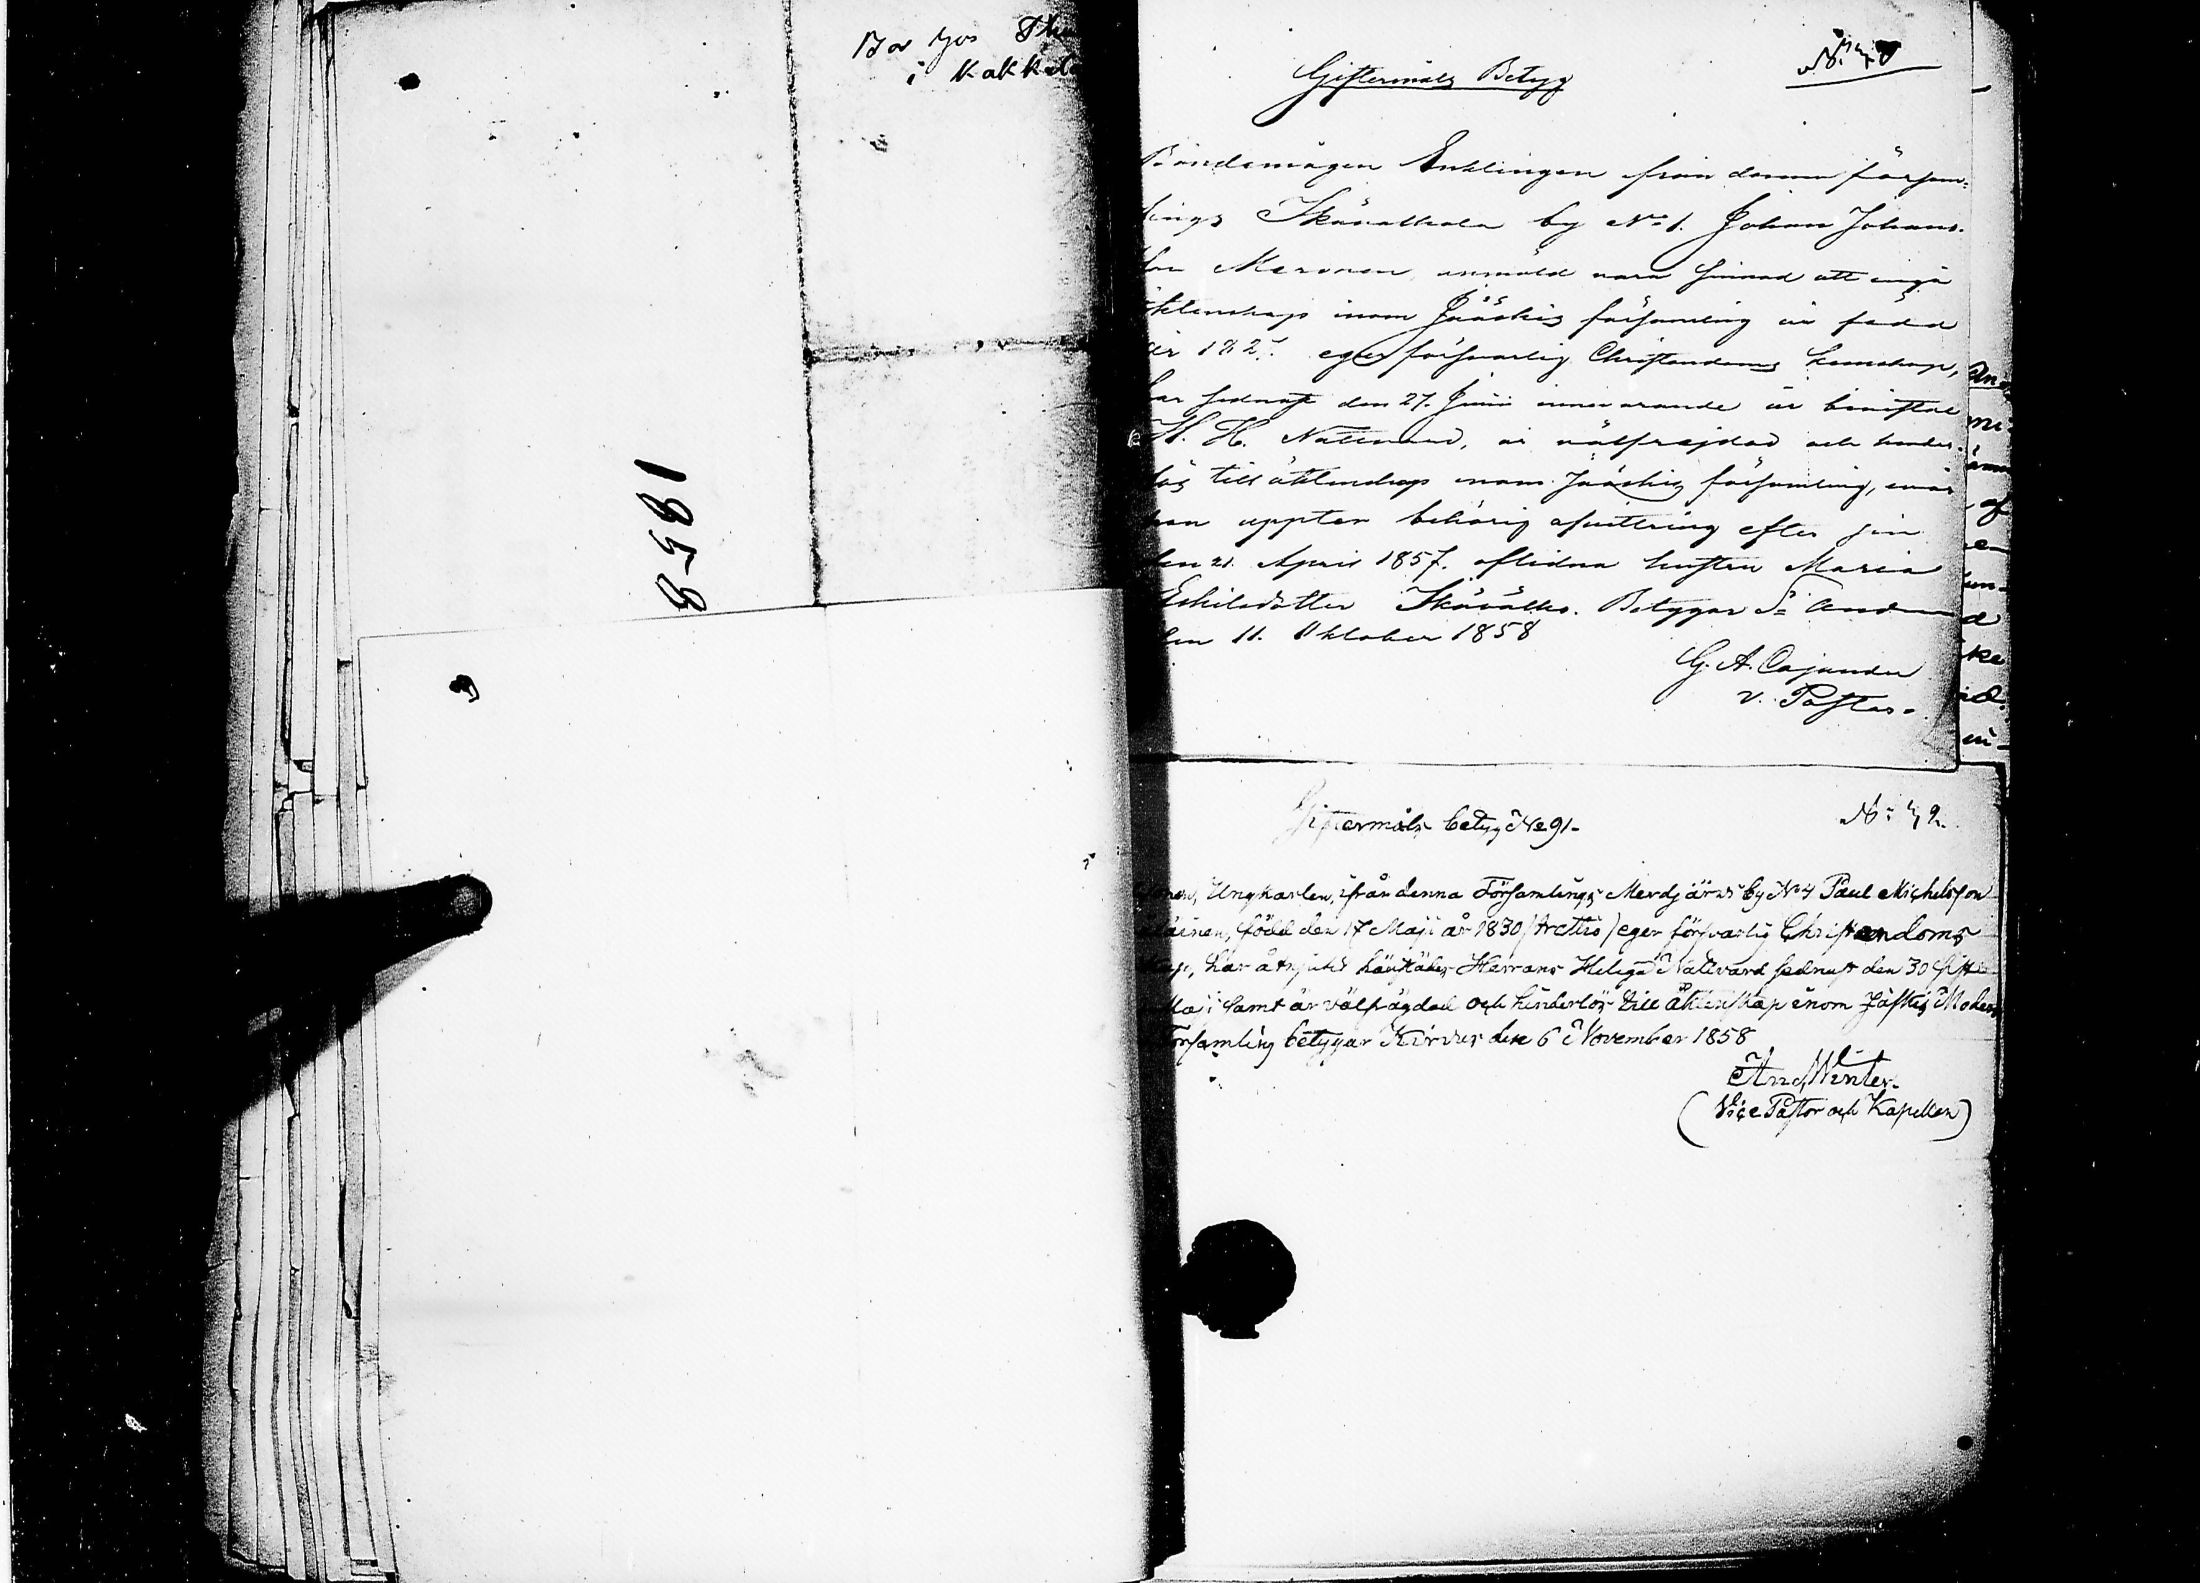 Bor hos
i Kakkola
1858
Giftermåls Betyg
Bondemågen Enklingen från denna försam-
lings by No 1. Johan Johans-
son Maronen, anmäld vara sinnad att ingå
äktenskap inom Jääskis församling är född
år 182 eger försvarlig Christendoms kunskap,
har sednast den 27. Junii innevarande år bevistat
H. H. Nattvard, är välfrejdad och hinder-
lös till äktenskap inom Jääskis församling, enär
han uppter behörig afvittring efter sin
den 21. April 1857. aflidna hustru Maria
Eskilsdotter Betygar St. Andreæ
den 11. Oktober 1858
G. A. Cajander
v. Pastor.
Giftermåls betyg No 91.
No 42.
Ungkarlen, ifrån denna Församlings Merdjärvi by No 4 Paul Michelsson
född den 17 Maji år 1830 eger försvarlig Christendoms
har åtnjutit Herrans Heliga Nattvard sednast den 30 sistl.
Maji samt är välfrägdad och hinderlös till äktenskap inom Jäskis Moder
Församling betygar Kirvus den 6 November 1858
And. Winter.
(Vice Pastor och Kapellan)